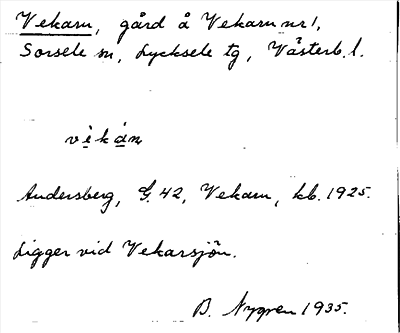 Vekarn, gård å Vekarn nr 1,
Sorsele sn, Lycksele tg, Västerb. l.
vèkán
Andersberg, G. 42, Vekarn, kb. 1925.
Ligger vid Vekarsjön.
B. Nygren 1935.